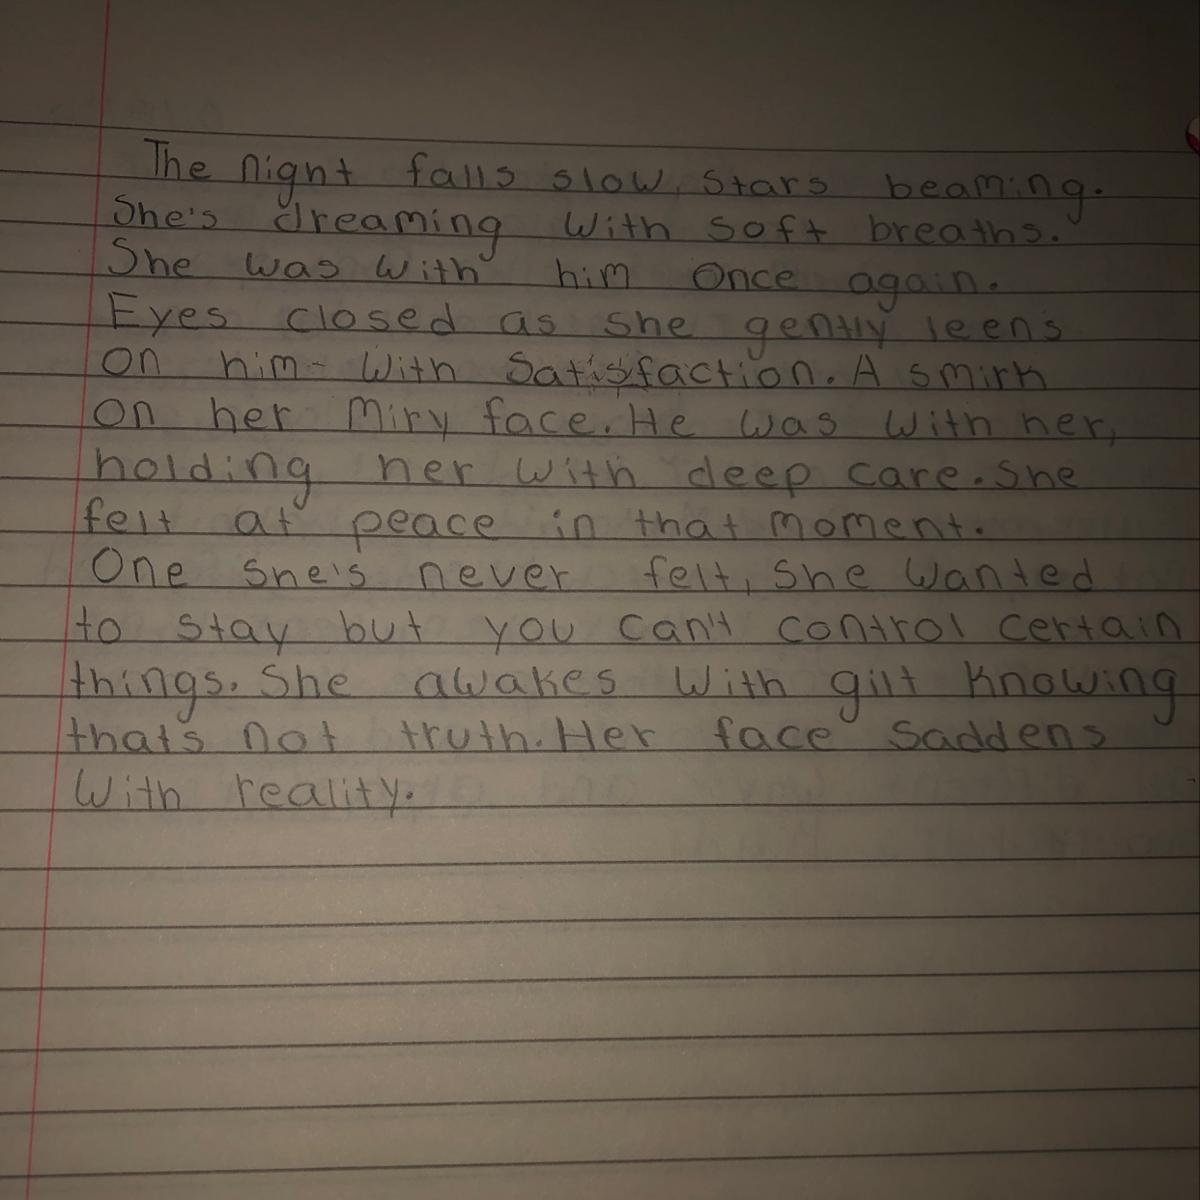 The night falls slow, stars beaming.
She's dreaming with soft breaths.
She was with him once again.
Eyes closed as she gently leens
on him- with satisfaction. A smirk
on her miry face. He was with her,
holding her with deep care. She
felt at peace in that moment.
One she's never felt, she wanted
to stay but you can't control certain
things. She awakes with gilt knowing
thats not truth. Her face saddens
with reality.